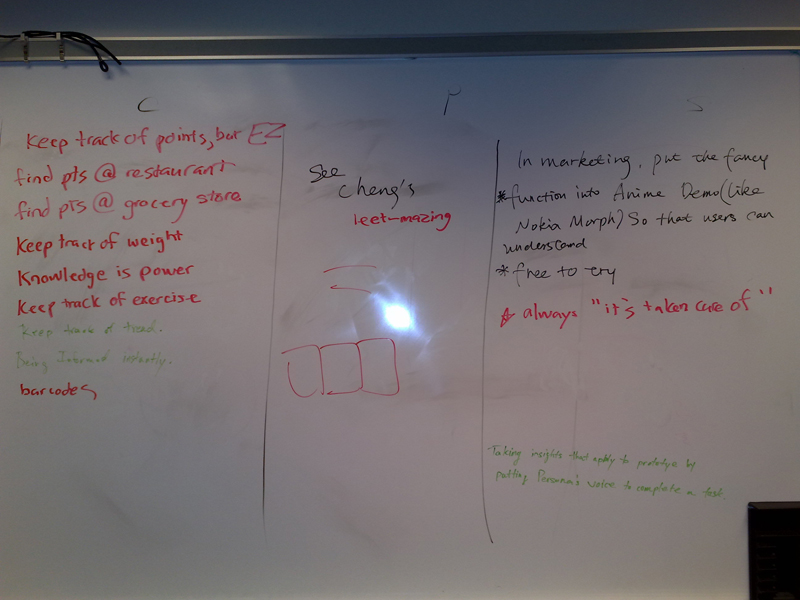 C
Keep track of points, but EZ
find pts @ restaurant
find pts @ grocery store
Keep tract of weight
Knowledge is power
Keep track of exercise
Keep track of trend.
Being Informed instantly.
barcodes
P
See
Cheng's
leet-mazing
S
In marketing, put the fancy
*function into Anime Demo(like
Nokia Morph) So that users can
understand
*free to try
* always "it's taken care of"
Taking insights that apply to prototye by
putting Personna's voice to complete a test.